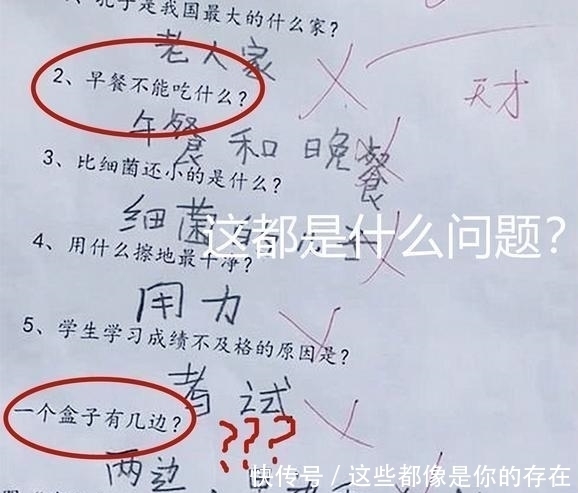 孔子是我国最大的什么家?
老人家
天才
2、早餐不能吃什么?
午餐和晚餐
3、比细菌还小的是什么?
细菌的儿子
这都是什么问题?
4、用什么擦地最干净?
用力
5、学生学习成绩不及格的原因是?
考试
一个盒子有几边?
???
两边
快传号/这些都像是你的存在